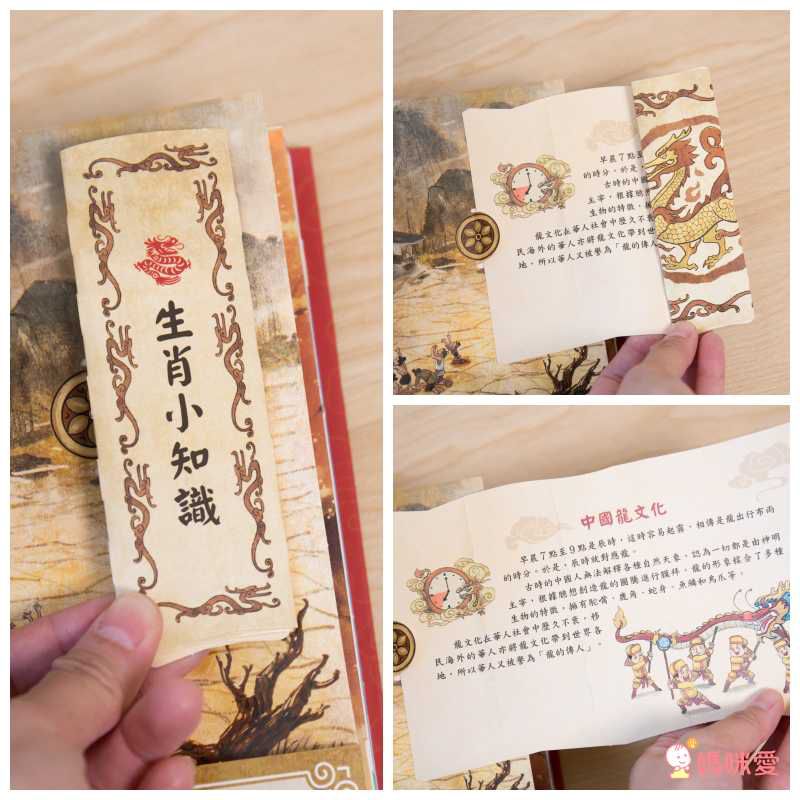 生肖小知識
早晨7點至
的時分。於是,
古時的中國
主宰,根據聽
生物的特徵,
龍文化在華人社會中歷久不衰
民海外的華人亦將龍文化帶到世
地,所以華人又被譽為「龍的傳人
中國龍文化
早晨7點至9點是辰時,這時容易起霧,相傳是龍出行布雨
的時分。於是,辰時就對應龍。
古時的中國人無法解釋各種自然天象,認為一切都是由神明
主宰,根據聽想創造龍的圖騰進行膜拜。龍的形象綜合了多種
生物的特徵,擁有駝嘴、鹿角、蛇身、魚鱗和鳥爪等。
龍文化在華人社會中歷久不衰,移
民海外的華人亦將龍文化帶到世界各
地,所以華人又被譽為「龍的傳人」。
媽咪愛